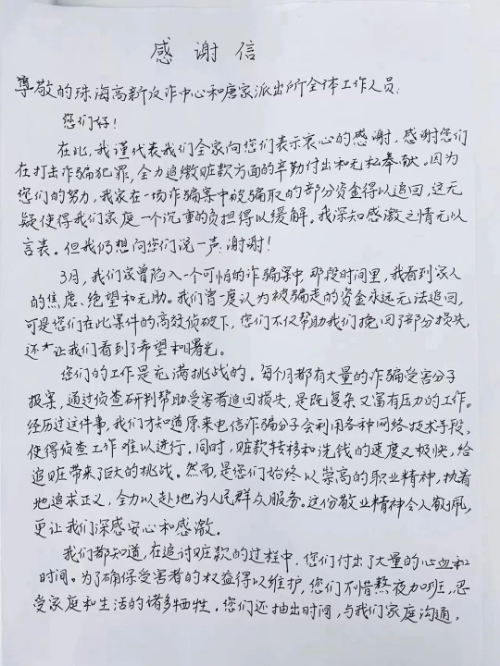 感谢信
尊敬的珠海高新反诈中心和唐家派出所全体工作人员:
您们好!
在此,我谨代表我们全家向您们表示衷心的感谢,感谢您们
在打击诈骗犯罪,全力追缴赃款方面的辛勤付出和无私奉献。因为
您们的努力,我家在一场诈骗案中被骗取的部分资金得以追回,这无
疑使得我们家庭一个沉重的负担得以缓解。我深知感激之情无以
言表。但我仍想向您们说一声:谢谢!
3月,我们家曾陷入一个可怕的诈骗案中,那段时间里,我看到家人
的焦虑、绝望和无助。我们曾一度认为被骗走的资金永远无法追回,
可是您们在此案件的高效侦破下,您们不仅帮助我们挽回了部分损失,
还让我们看到了希望和曙光。
您们的工作是充满挑战的。每个月都有大量的诈骗受害分子
报案,通过侦查研判帮助受害者追回损失,是既复杂又富有压力的工作。
经历过这件事,我们才知道原来电信诈骗分子会利用各种网络技术手段,
使得侦查工作难以进行。同时,赃款转移和洗钱的速度又极快,给
追赃带来了巨大的挑战。然而,是您们始终以崇高的职业精神,执着
地追求正义,全力以赴地为人民群众服务。这份敬业精神令人敬佩,
更让我们深感安心和感激。
我们都知道,在追讨赃款的过程中,您们付出了大量的心血和
时间。为了确保受害者的权益得以维护,您们不惜熬夜加班,忍
受家庭和生活的诸多牺牲。您们还抽出时间,与我们家庭沟通,